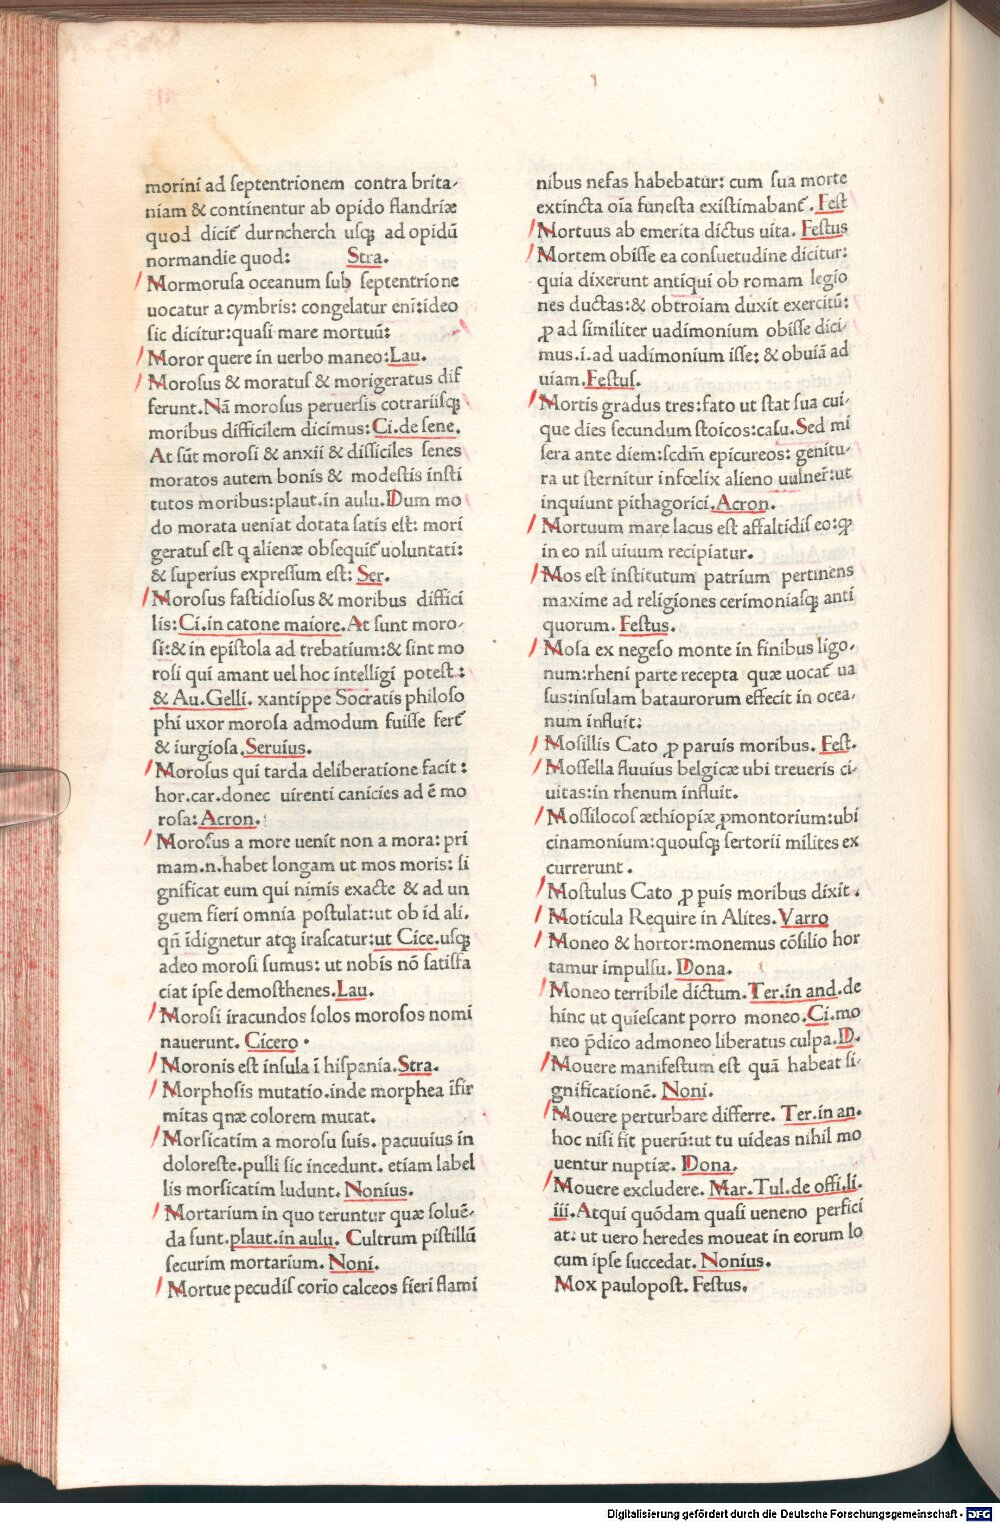 morini ad septentrionem contra brita-
niam & continentur ab opido flandriæ
quod dicit̃ durncherch usqꝫ ad opidũ
normandie quod: Stra.
Mormorusa oceanum sub septentrione
uocatur a cymbris: congelatur eni:ideo
sic dicitur:quasi mare mortuũ:
Moror quere in uerbo maneo:Lau.
Morosus & moratus & morigeratus dif
ferunt.Nã morosus peruersis cotrariisqꝫ
moribus difficilem dicimus:Ci.de sene.
At sũt morosi & anxii & difficiles senes
moratos autem bonis & modestis insti
tutos moribus:plaut.in aulu.Dum mo
do morata ueniat dotata satis est: mori
geratus est q alienæ obsequit̃ uoluntati:
& superius expressum est: Ser.
Morosus fastidiosus & moribus diffici
lis:Ci.in catone maiore.At sunt moro-
si:& in epistola ad trebatium:& sint mo
rosi qui amant uel hoc intelligi potest:
& Au.Gelli. xantippe Socratis philoso
phi uxor morosa admodum fuisse fert̃
& iurgiosa.Seruius.
Morosus qui tarda deliberatione facit:
hor.car.donec uirenti canicies ad ẽ mo
rosa:Acron.
Morosus a more uenit non a mora: pri
mam.n.habet longam ut mos moris: si
gnificat eum qui nimis exacte & ad un
guem fieri omnia postulat:ut ob id ali.
qñ ĩdignetur atqꝫ irascatur:ut Cice.usqꝫ
adeo morosi sumus: ut nobis nõ satisfa
ciat ipse demosthenes.Lau.
Morosi iracundos solos morosos nomi
nauerunt. Cicero.
Moronis est insula ĩ hispania.Stra.
Morphosis mutatio.inde morphea ĩfir
mitas qnæ colorem mutat.
Morsicatim a morosu suis. pacuuius in
doloreste.pulli sic incedunt. etiam label
lis morsicatim ludunt. Nonius.
Mortarium in quo teruntur quæ soluẽ-
da sunt.plaut.in aulu. Cultrum pistillũ
securim mortarium. Noni.
Mortue pecudis corio calceos fieri flami
nibus nefas habebatur: cum sua morte
extincta oĩa funesta existimabant̃. Fest
Mortuus ab emerita dictus uita. Festus
Mortem obisse ea consuetudine dicitur:
quia dixerunt antiqui ob romam legio
nes ductas:& obtroiam duxit exercitũ:
ꝓ ad similiter uadimonium obisse dici-
mus.i.ad uadimonium isse: & obuiã ad
uiam.Festus.
Mortis gradus tres:fato ut stat sua cui-
que dies secundum stoicos:casu.Sed mi
sera ante diem:scdm̃ epicureos: genitu-
ra ut sternitur infœlix alieno uulner̃:ut
inquiunt pithagorici.Acron.
Mortuum mare lacus est assaltidis eo:ꝙ
in eo nil uiuum recipiatur.
Mos est institutum patrium pertinens
maxime ad religiones cerimoniasqꝫ anti
quorum. Festus.
Mosa ex negeso monte in finibus ligo-
num:rheni parte recepta quæ uocat̃ ua
sus:insulam bataurorum effecit in ocea-
num influit:
Mosillis Cato ꝓ paruis moribus. Fest.
Mossella fluuius belgicæ ubi treueris ci-
uitas:in rhenum influit.
Mossilocos æthiopiæ ꝓmontorium:ubi
cinamonium:quousqꝫ sertorii milites ex
currerunt.
Mostulus Cato ꝓ puis moribus dixit.
Moticula Require in Alites. Varro
Moneo & hortor:monemus cõsilio hor
tamur impulsu. Dona.
Moneo terribile dictum.Ter.in and.de
hinc ut quiescant porro moneo.Ci.mo
neo p̃dico admoneo liberatus culpa.D.
Mouere manifestum est quã habeat si-
gnificationẽ. Noni.
Mouere perturbare differre. Ter.in an.
hoc nisi fit puerũ:ut tu uideas nihil mo
uentur nuptiæ. Dona.
Mouere excludere. Mar.Tul.de offi.li.
iii.Atqui quõdam quasi ueneno perfici
at: ut uero heredes moueat in eorum lo
cum ipse succedat. Nonius.
Mox paulopost. Festus.
Digitalisierung gefördert durch die Deutsche Forschungsgemeinschaft - DFG